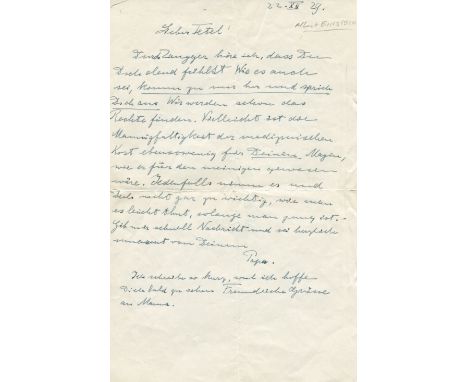 22.XII 29.
Albert Einstein
Lieber Tetel!
Durch Zangger höre ich, dass Du
Dich elend fühlst. Wie es auch
sei, komm zu mir her und sprich
Dich aus. Wir werden schon das
Rechte finden. Vielleicht ist die
Mannigfaltigkeit der medizinischen
Kost ebensowenig für Deinen Magen,
wie es für den meinigen gewesen
wäre. Jedenfalls nimm es und
Dich nicht gar zu wichtig, wie man
es leicht thut, solange man jung ist.-
Gib mir schnell Nachricht und sei herzlich
umarmt von Deinem
Papa.
Ich schreibe so kurz, weil ich hoffe
Dich bald zu sehen. Freundliche Grüsse
an Mama.